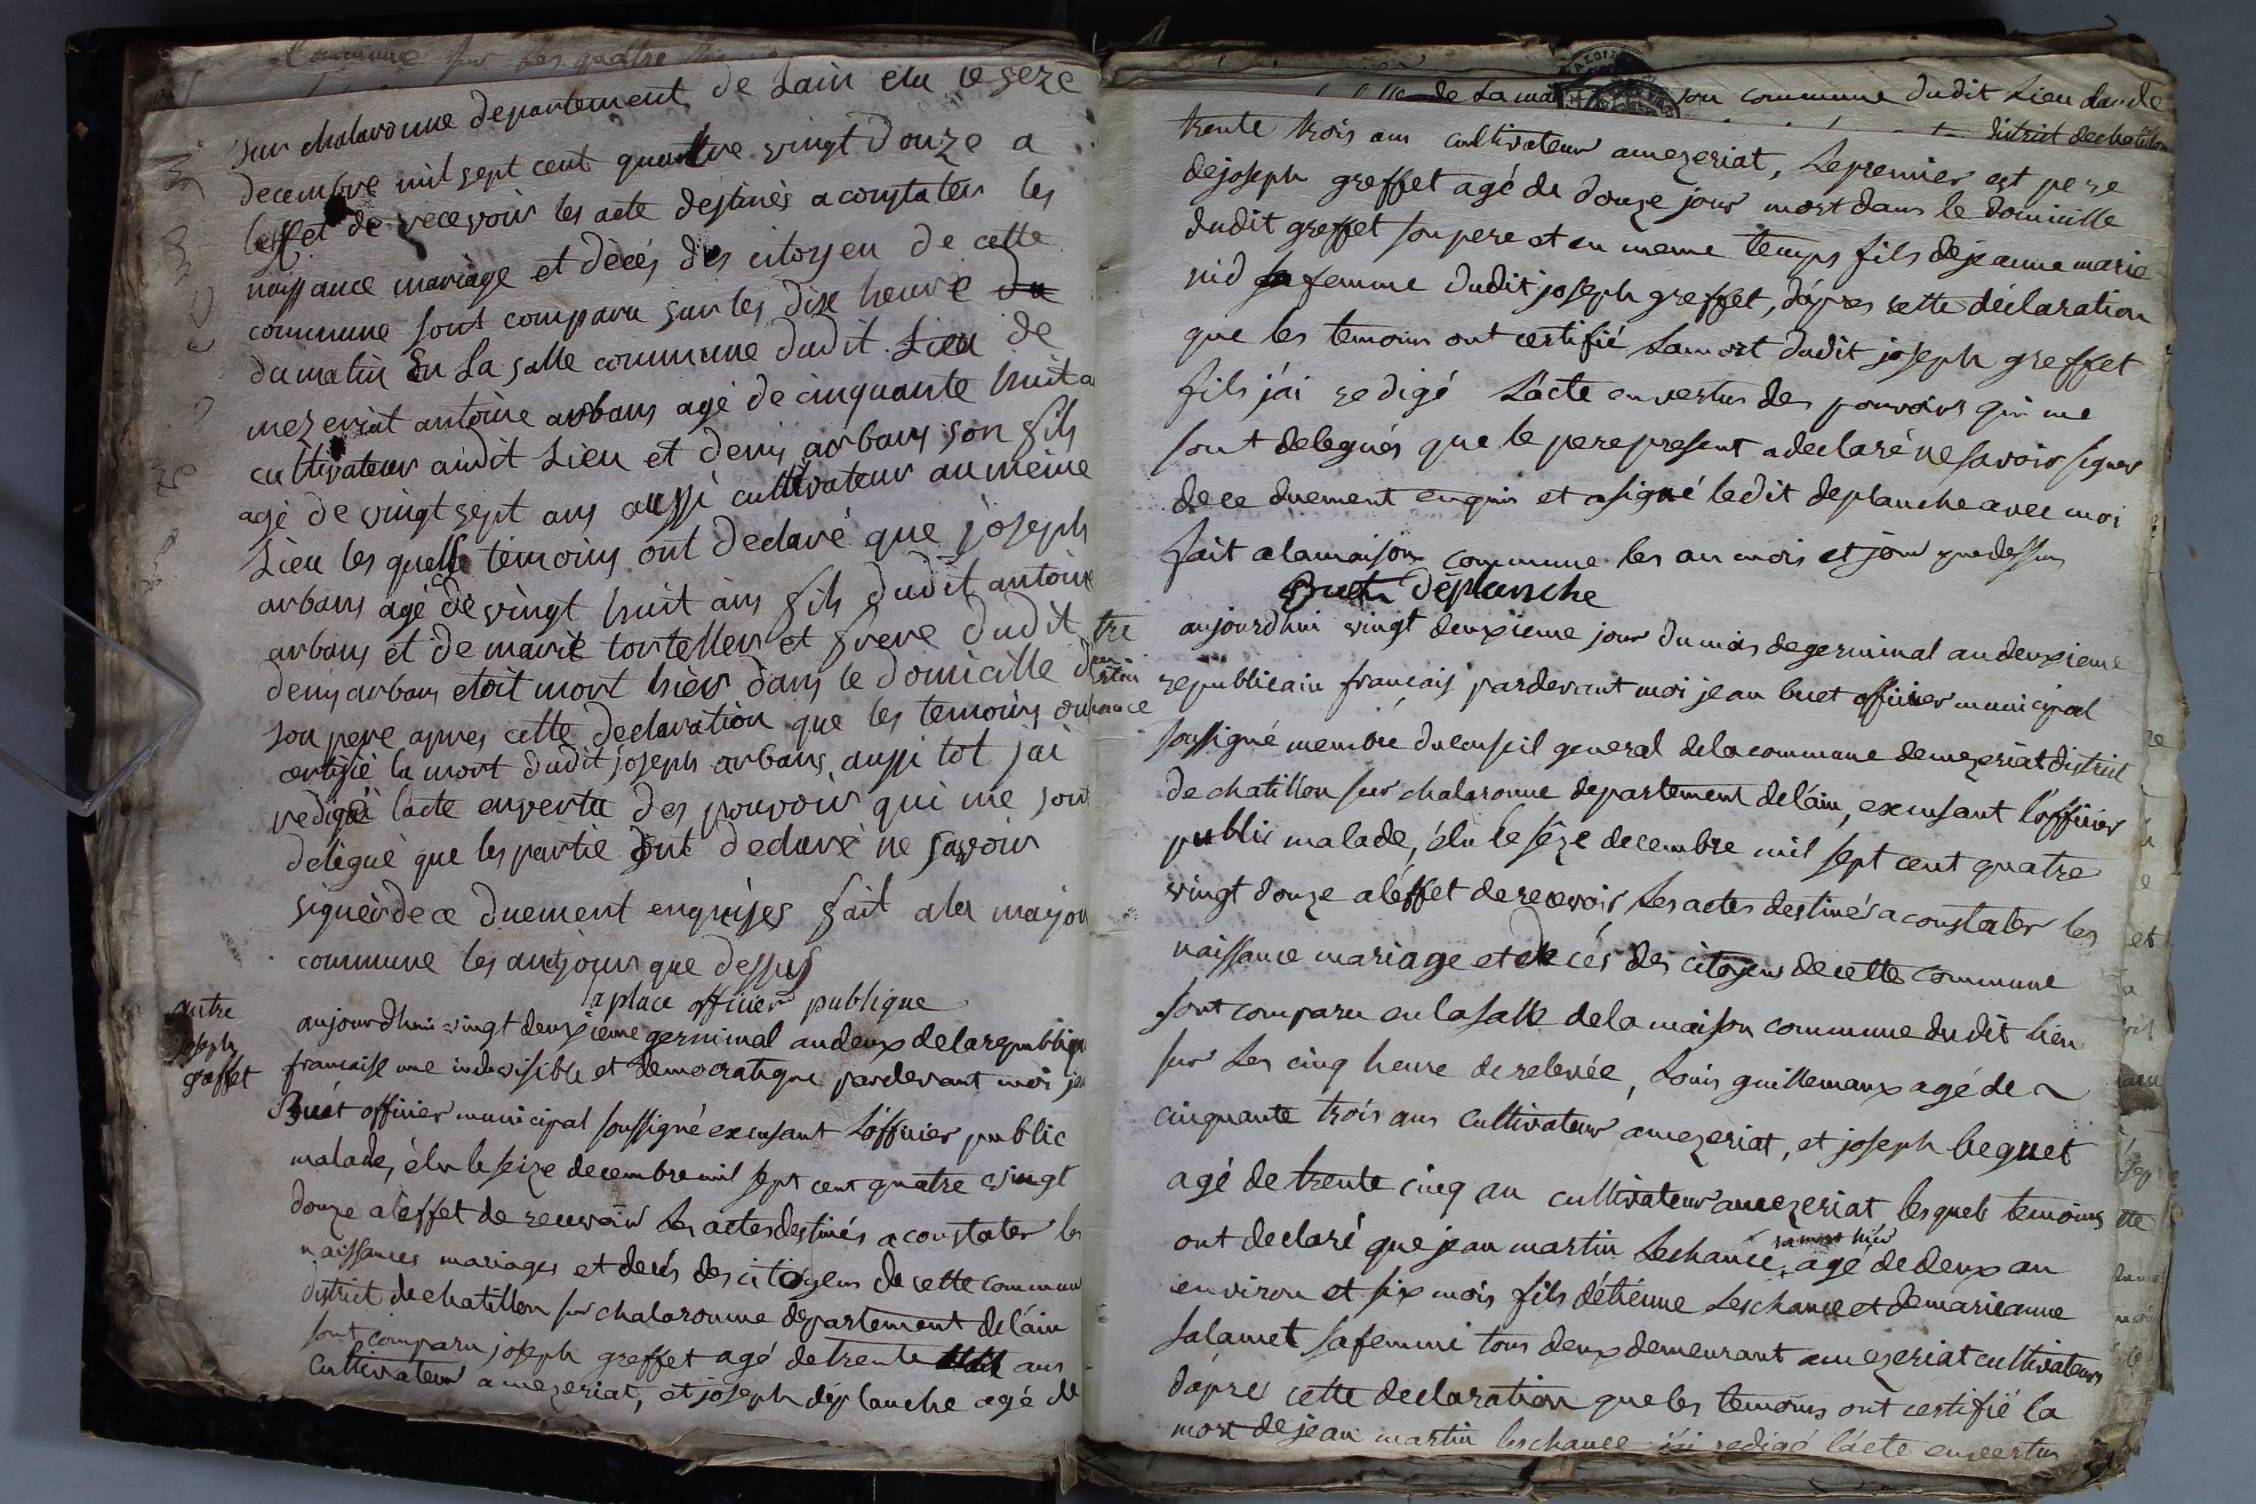 sur chalaronne departement de Lain elu le seze
decembre mil sept cent quattre vingt douze a
leffet de recevoir les acte destinés a constater les
naissance mariage et décés des citoyen de cette
commune sont comparu sur les dix heure du
du matin En La salle commune dudit Lieu de
mezeriat antoine arbans agé de cinquante huit a
cultivateur audit Lieu et denis arbans son fils
agé de vingt sept ans aussi cultivateur au même
Lieu les quells temoins ont declaré que joseph
arbans agé de vingt huit ans fils dudit antoine
arbans et de marie tortellier et frere dudit
denis arbans etoit mort hier dans le domicille d
son pere apres cette declaration que les temoins on
certifié la mort dudit joseph arbans aussi tot jai
redigé lacte envertu des pouvoir qui me sont
delegué que les partie ont declaré ne savoir
signér de ce duement enquises fait a la maison
commune les an et jour que dessus
laplace officier publique
autre
joseph
greffet
aujourdhui vingt deuxieme germinal an deux de la republique
francaise une indivisible et democratique pardevant moi je
Buét officier municipal soussigné excusant L'officier public
malade, élu le seize decembre mil sept cent quatre vingt
douze a l'effet de recevoir Les actes destinés a constater les
naissances mariages et decés des citoyens de cette commun
district de chatillon sur chalaronne departement de láin
sont comparu joseph greffet agé de trente huit ans
cultivateur a mezeriat, et joseph déplanche agé de
de La maison commune dudit Lieu dan de
district de chatillon
trente trois ans cultivateur amezeriat, Le premier est pere
de joseph greffet agé de douze jour mort dans le domicille
dudit greffet son pere et en meme temps fils de jeanne marie
nid sa femme dudit joseph greffet, dápres cette déclaration
que les temoins ont certifié La mort dudit joseph greffet
fils j'ai redigé L'acte en vertus des pouvoirs qui me
sont delegués que le pere present a declaré ne savoir signer
de ce duement enquis et a signé ledit deplanche avec moi
fait a la maison commune les an mois et jour que dessus
Buet déplanche
aujourdhui vingt deuxieme jour du mois de germinal an deuxieme
republicain francais pardevant moi jean buet officier municipal
soussigné membre du conseil general de la commune de mezeriat district
de chatillon sur chalaronne departement de láin, excusant l'officier
public malade, élu le séze decembre mil sept cent quatre
vingt douze a l'éffet de recevoir Les actes destinés a constater les
naissance mariage et de cés des citoyens de cette commune
sont comparu en la salle de la maison commune du dit Lieu
sur Les cinq heure de relevée, Louis guillemaux agé de
cinquante trois ans cultivateur amezeriat, et joseph beguet
agé de trente cinq an cultivateur amezeriat lesquels temoins
ont declaré que jean martin Leschance, est mort hier agé de deux an
environ et six mois fils détiénne Leschance et de marieanne
salamet sa femme tous deux demeurant amezeriat cultivateurs
dapres cette declaration que les temoins ont certifié la
mort de jean martin leschance j'ai redigé lácte en vertus